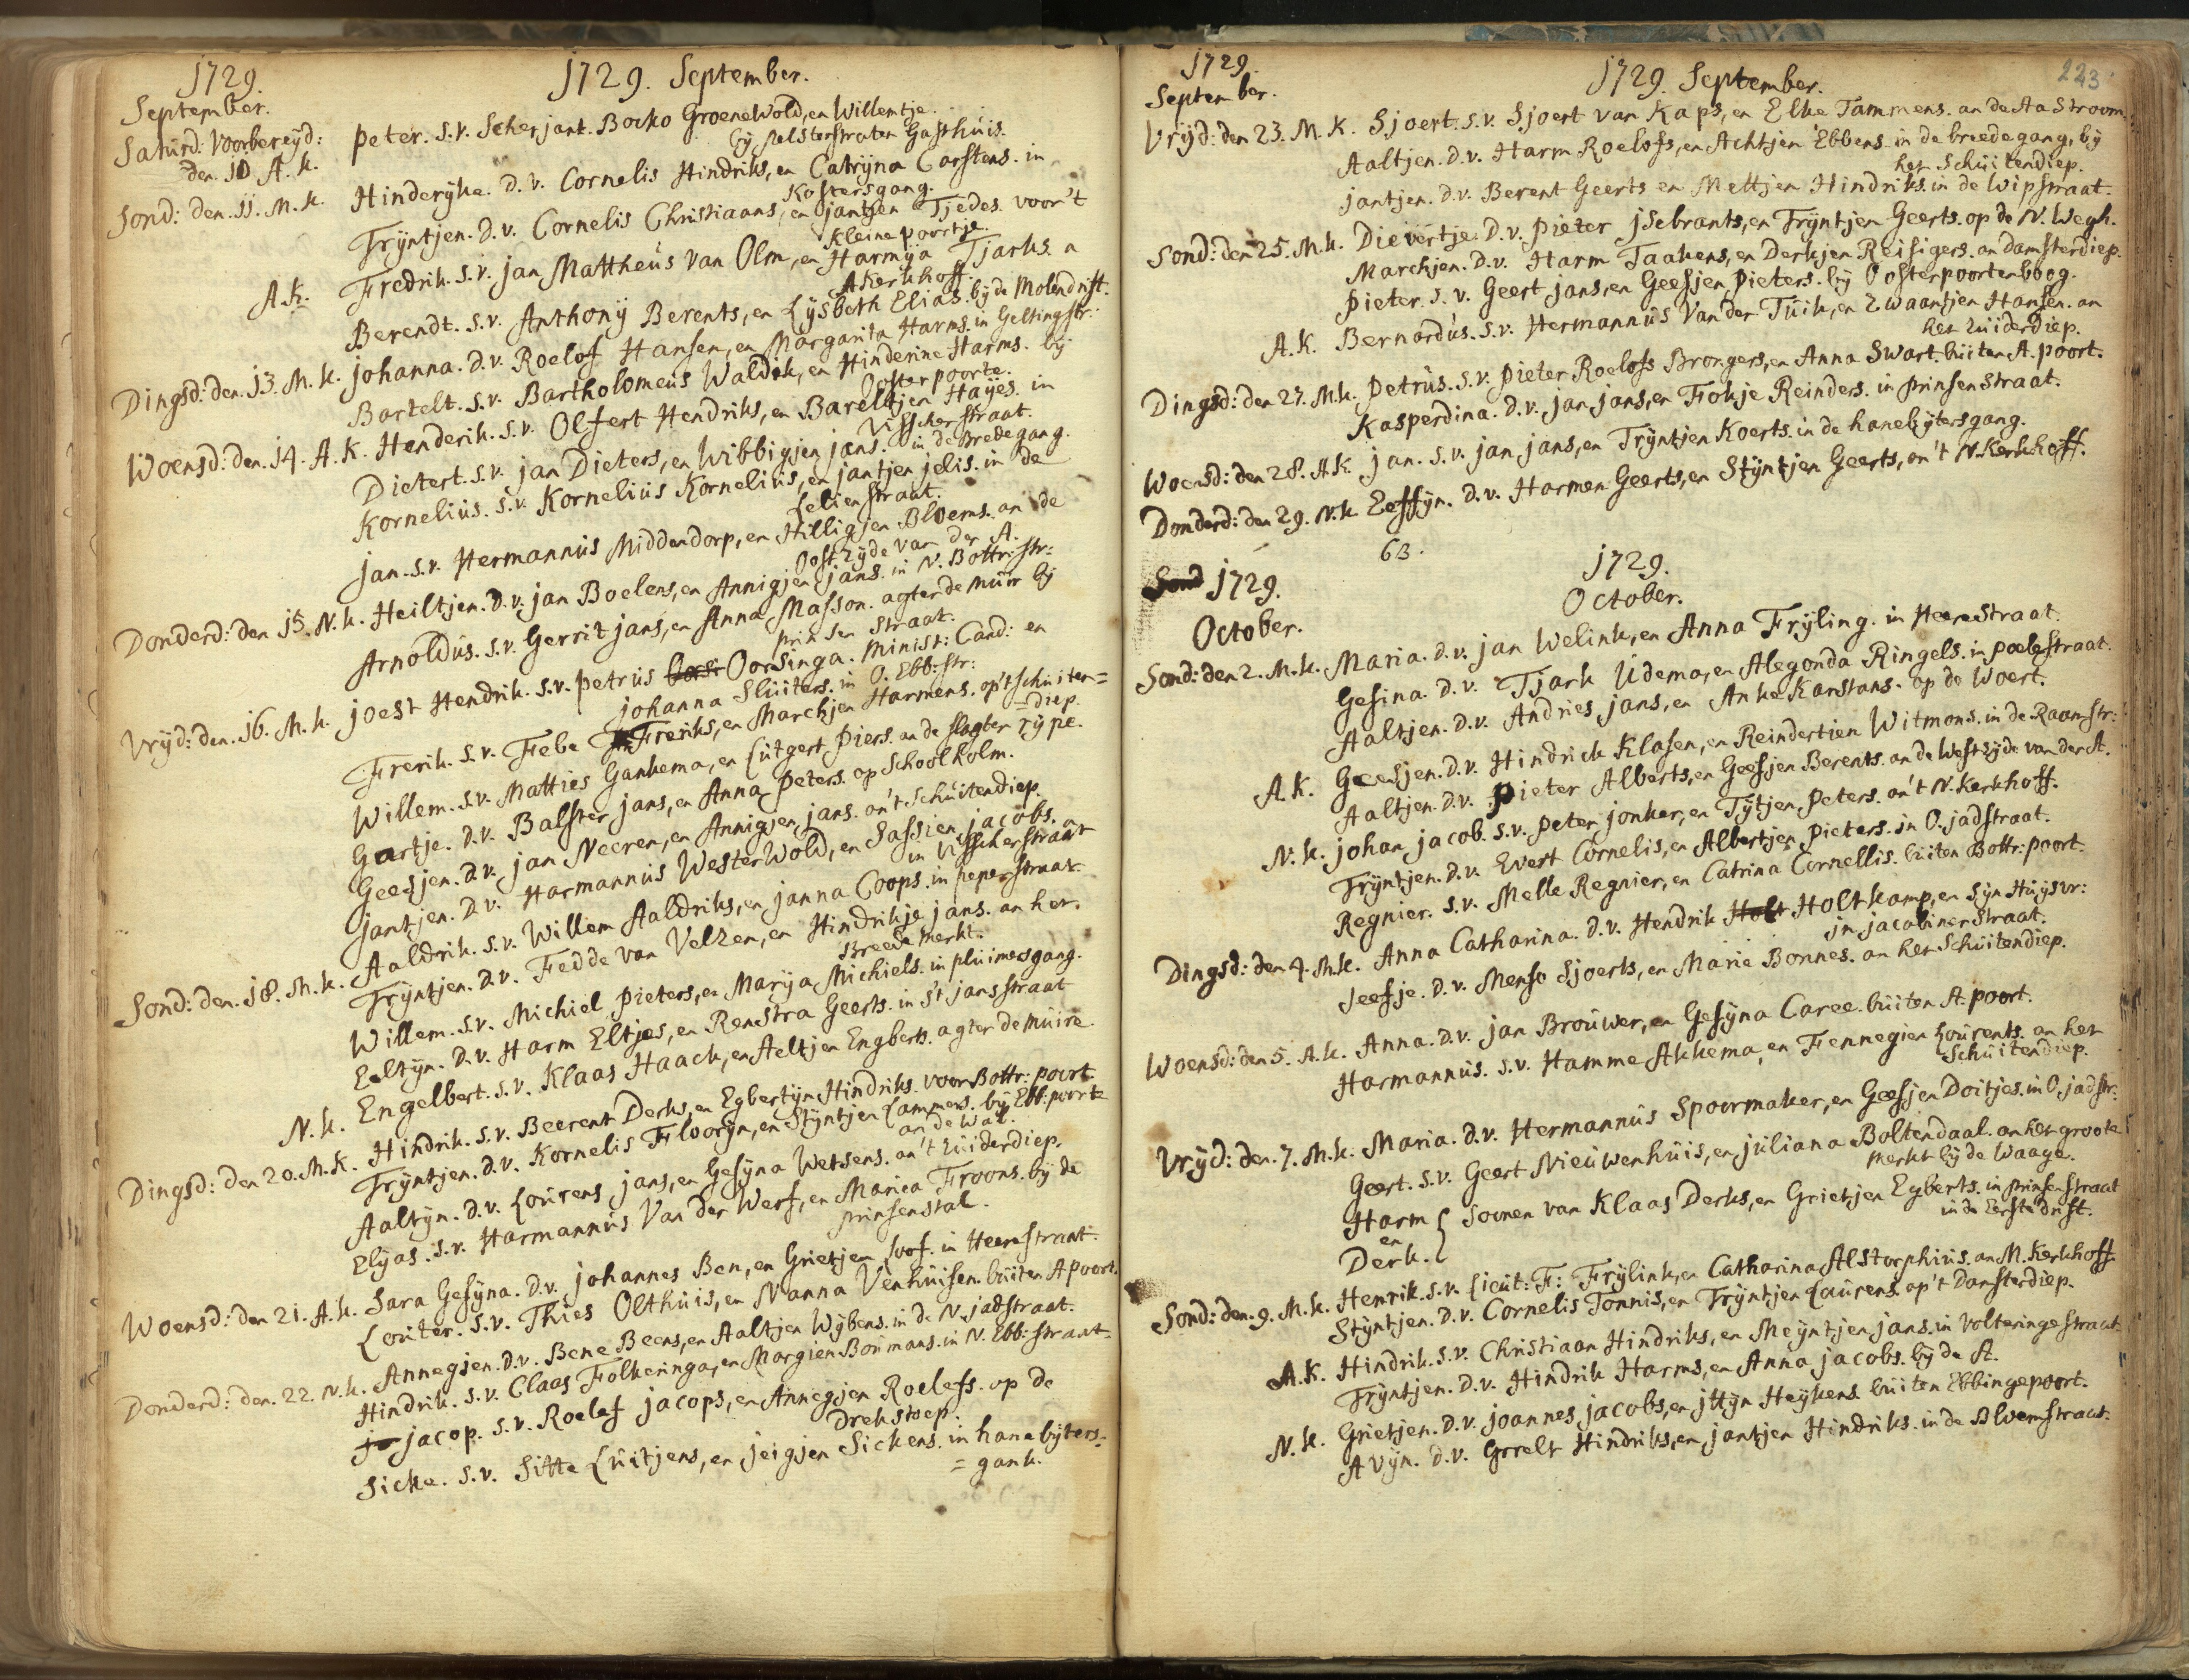 1729.
September.
1729. September.
Saturd: Voorbereyd: Peter. S.v. Scherjant. Bocko GroeneWold, en Willemtje.
den 10 A. k. by Pelsterstraten Gasthuis.
Sond: den. 11. M. k. Hinderÿke. D. v. Cornelis Hindriks, en Catrÿna Carstens. in
Kostersgang.
Trÿntjen. D. v. Cornelis Christiaans, en jantjen Tjedes. voor't
kleine poortje.
A.k. Fredrik. S.v. jan Mattheüs Van Olm, en Harmÿa Tjarks. a
Akerkhoff.
Berendt. S.v. Anthonÿ Berents, en Lÿsbeth Elias. bÿ de Molendrift.
Dingsd: den. 13. M. k. johanna. D.v. Roelof Hansen, en Margarita Harms. in Geltingstr:
Bartelt. S.v. Bartholomeüs Waldik, en Hinderine Harms. bÿ
Oosterpoorte.
Woensd: den. 14. A. K. Henderik. S.v. Olfert Hendriks, en Bareltjen Haÿes. in
Visscherstraat.
Dietert. S.v. jan Dieters, en Wibbigjen jans. in de Bredegang.
Kornelius. S.v. Kornelius Kornelius, en jantjen jelis. in de
Lelienstraat.
jan. S.v. Hermannüs Middendorp, en Hilligjen Bloems. an de
Oostzÿde van der A.
Donderd: den 15. N. k. Heiltjen. D.v. jan Boelens, en Annigjen jans. in N. Bottr: str:
Arnoldüs. S.v. Gerrit jans, en Anna Masson. agter de müir bÿ
prinsen straat.
Vrÿd: den. 16. M. k. joest Hendrik. S.v. Petrüs Oorsinga. Minist: Cand: en
johanna Slüiters. in O. Ebb: str:
Frerik. S.v. Febe Freriks, en Marchjen Harmens. op't schuiten=
=diep.
Willem. S.v. Matties Gankema, en Lütgert Piers. an de slagter rÿpe.
Gartje. D.v. Balster jans, en Anna Peters. op Schoolholm.
Geesjen. D.v. jan Neeren, en Annigjen jans. an't Schüitendiep.
jantjen. D.v. Harmannüs WesterWold, en Sassien jacobs. a
in Visscherstraat
Sond: den. 18. M. k. Aaldrik. S.v. Willem Aaldriks, en janna Coops. in peperstraat.
Trÿntjen. D.v. Fedde van Velzen, en Hindrikje jans. an het.
Breede Merkt.
Willem. S.v. Michiel Pieters, en Marÿa Michiels. in plüimersgang.
Eeltÿn. D.v. Harm Eltjes, en Renstra Geerts. in s't jansstraat
N. k. Engelbert. S.v. Klaas Haack, en Aeltjen Engberts. agter de müire.
Dingsd: den 20. M. K. Hindrik. S.v. Beerent Derks, en Egbertÿn Hindriks. voor Bottr: poort
Trÿntjen. D.v. Kornelis Floorÿn, en Stÿntjen Lammers. bÿ Ebb: poorte
an de Wal.
Aaltÿn. D.v. Loürens jans, en Gesÿna Wetsens. an't Züiderdiep.
Elÿas. S.v. Harmannüs Van der Werf, en Marica Froons. bÿ de
prinsenstal.
Woensd: den 21. A. k. Sara Gesÿna. D.v. johannes Ben, en Grietjen Svof. in Heerestraat.
Loüter. S.v. Thies Olthüis, en Nanna Venhüisen. büiten A poort.
Donderd: den. 22. N. k. Annegjen. D.v. Bene Beens, en Aaltjen Wÿbens. in de N. jadstraat.
Hindrik. S.v. Claas Folkeringa, en Margien Boümans. in N. Ebb: straat
jacop. S.v. Roelef jacops, en Annegjen Roelefs. op de
Drekstoep.
Sicke. S.v. Sitte Lüitjens, en jeigjen Sickens. in hanebÿters=
=gank.
1729.
September.
1729. September.
223
Vrÿd: den 23. M. K. Sjoert. S.v. Sjoert van Kaps, en Elke Tammens. an de Aa Stroom.
Aaltjen. D.v. Harm Roelofs, en Achtjen Ebbens. in de breedegang, bÿ
het Schüitendiep.
jantjen. D.v. Berent Geerts en Mettjen Hindriks. in de Wipstraat.
Sond: den 25. M. k. Dievertje. D.v. Pieter jsebrants, en Trÿntjen Geerts. op de N. Wegh.
Marchjen. D.v. Harm Taakens, en Derkjen Reisigers. an damsterdiep.
Pieter. S.v. Geert jans, en Geesjen Pieters. bÿ Oosterpoortenboog.
A. k. Bernardüs. S.v. Hermannüs Van der Tüik, en Zwaantjen Hansen. an
het Züiderdiep.
Dingsd: den 27. M. k. Petrüs. S.v. Pieter Roelofs Brongers, en Anna Swart. büiten A. poort.
Kasperdina. D.v. jan jans, en Fokje Reinders. in prinsenstraat.
Woensd: den 28. A. k. jan. S.v. jan jans, en Trÿntjen Koerts. in de hanebÿtersgang.
Donderd: den 29. N. k Eessÿn. D.v. Harmen Geerts, en Stÿntjen Geerts, an't N. kerkhoff.
63.
Sond 1729.
October.
1729.
October.
Sond: den 2. M. k. Maria. D.v. jan Welink, en Anna Frÿling. in Heerestraat.
Gesina. D.v. Tjark Üdema, en Alegonda Ringels. in poelestraat.
Aaltjen. D.v. Andries jans, en Anke Karstans. op de Woert.
A. k. Geesjen. D.v. Hindrick Klasen, en Reindertien Witmons. in de Raamstr:
Aaltjen. D.v. Pieter Alberts, en Geesjen Berents. an de Westzÿde van der A.
N. k. johan jacob. S.v. Peter jonker, en Tÿtjen Peters. an't N. Kerkhoff.
Trÿntjen. D.v. Evert Cornelis, en Albertjen Pieters. in O. jadstraat.
Regnier. S.v. Melle Regnier, en Catrina Cornellis. büiten Bottr: poort.
Dingsd: den 4. M. k. Anna Catharina. D.v. Hendrik Holt Holtkamp, en sÿn Hüÿsvr:
jn jacobinerstraat.
Jeesje. D.v. Menso Sjoerts, en Maria Bonnes. an het Schüitendiep.
Woensd: den 5. A. k. Anna. D.v. jan Broüwer, en Gesÿna Caree. büiten A. poort.
Harmannüs. S.v. Hamme Akkema, en Fennegien Loürents. an het
Schüitendiep.
Vrÿd: den. 7. M. k. Maria. D.v. Hermannüs Spoormaker, en Geesjen Doitjes. in O. jadstr:
Geert. S.v. Geert Nieüwenhüis, en jüliana Boltendaal. an het groote
Merkt bÿ de Waage.
Harm
en
Derk. { Soonen van Klaas Derks, en Grietjen Egberts. in prinsenstraat
in de Eerste drift.
Sond: den. 9. M. k. Henrik. S.v. Lieüt: F: Frÿlink, en Catharina Alstorphiüs. an M. Kerkhoff
Stÿntjen. D.v. Cornelis Tonnis, en Trÿntjen Laürens. op't Damsterdiep.
A. K. Hindrik. S.v. Christiaan Hindriks, en Meÿntjen jans. in Volteringestraat.
Trÿntjen. D.v. Hindrik Harms, en Anna jacobs. bÿ de A.
N. k. Grietjen. D.v. joannes jacobs, en jttÿn Heÿkens. büiten Ebbingepoort.
Avÿn. D.v. Greelt Hindriks, en jantjen Hindriks. in de Bloemstraat.